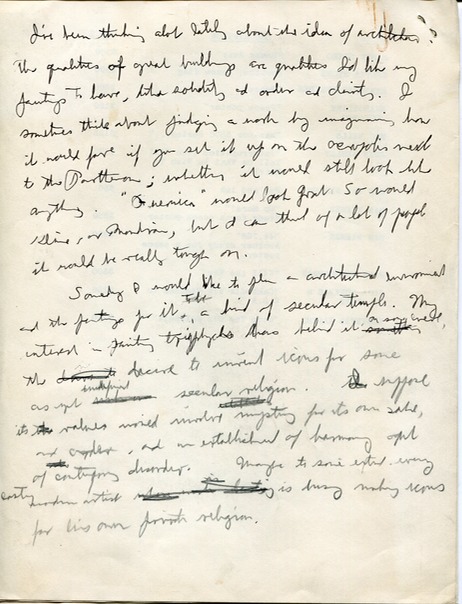 I've been thinking alot lately about the idea of architecture.
The qualities of great buildings are qualities I'd like my
paintings to have, like solidity ad order ad clarity. I
sometimes think about judging a work by imagining how
it would fare if you set it up on the acropolis next
to the Parthenon; whether it would still look like
anything. "Guernica" would look great. So would
Kline, or Mondrian, but I can think of a lot of people
it would be really tough on.
Someday I would like to plan a architectural environment
and the paintings for it, a kind of secular temple. My
interest in painting triptychs has behind it
the desire to invent icons for some
as yet secular religion. I suppose
its values would involve mystery for its own sake,
and an of harmony out
of contrary disorder. Maybe to some extent every
modern artist is busy making icons
for his own private religion.